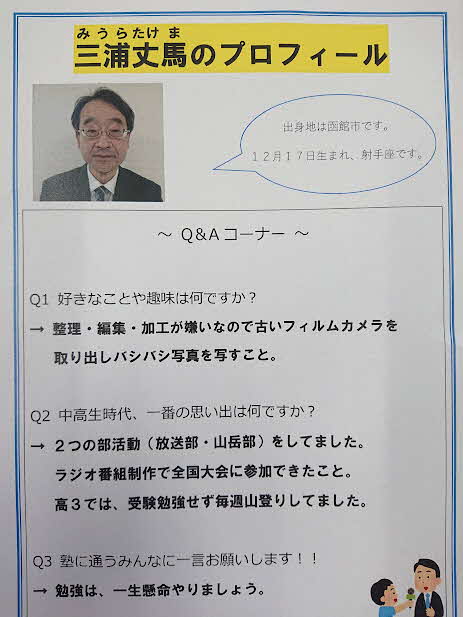 みうらたけ ま
三浦丈馬のプロフィール
出身地は函館市です。
１２月１７日生まれ、射手座です。
～ Q＆A コーナー ～
Q1 好きなことや趣味は何ですか？
→ 整理・編集・加工が嫌いなので古いフィルムカメラを
取り出しバシバシ写真を写すこと。
Q2 中高生時代、一番の思い出は何ですか？
→ ２つの部活動（放送部・山岳部）をしてました。
ラジオ番組制作で全国大会に参加できたこと。
高３では、受験勉強せず毎週山登りしてました。
Q3 塾に通うみんなに一言お願いします！！
→ 勉強は、一生懸命やりましょう。